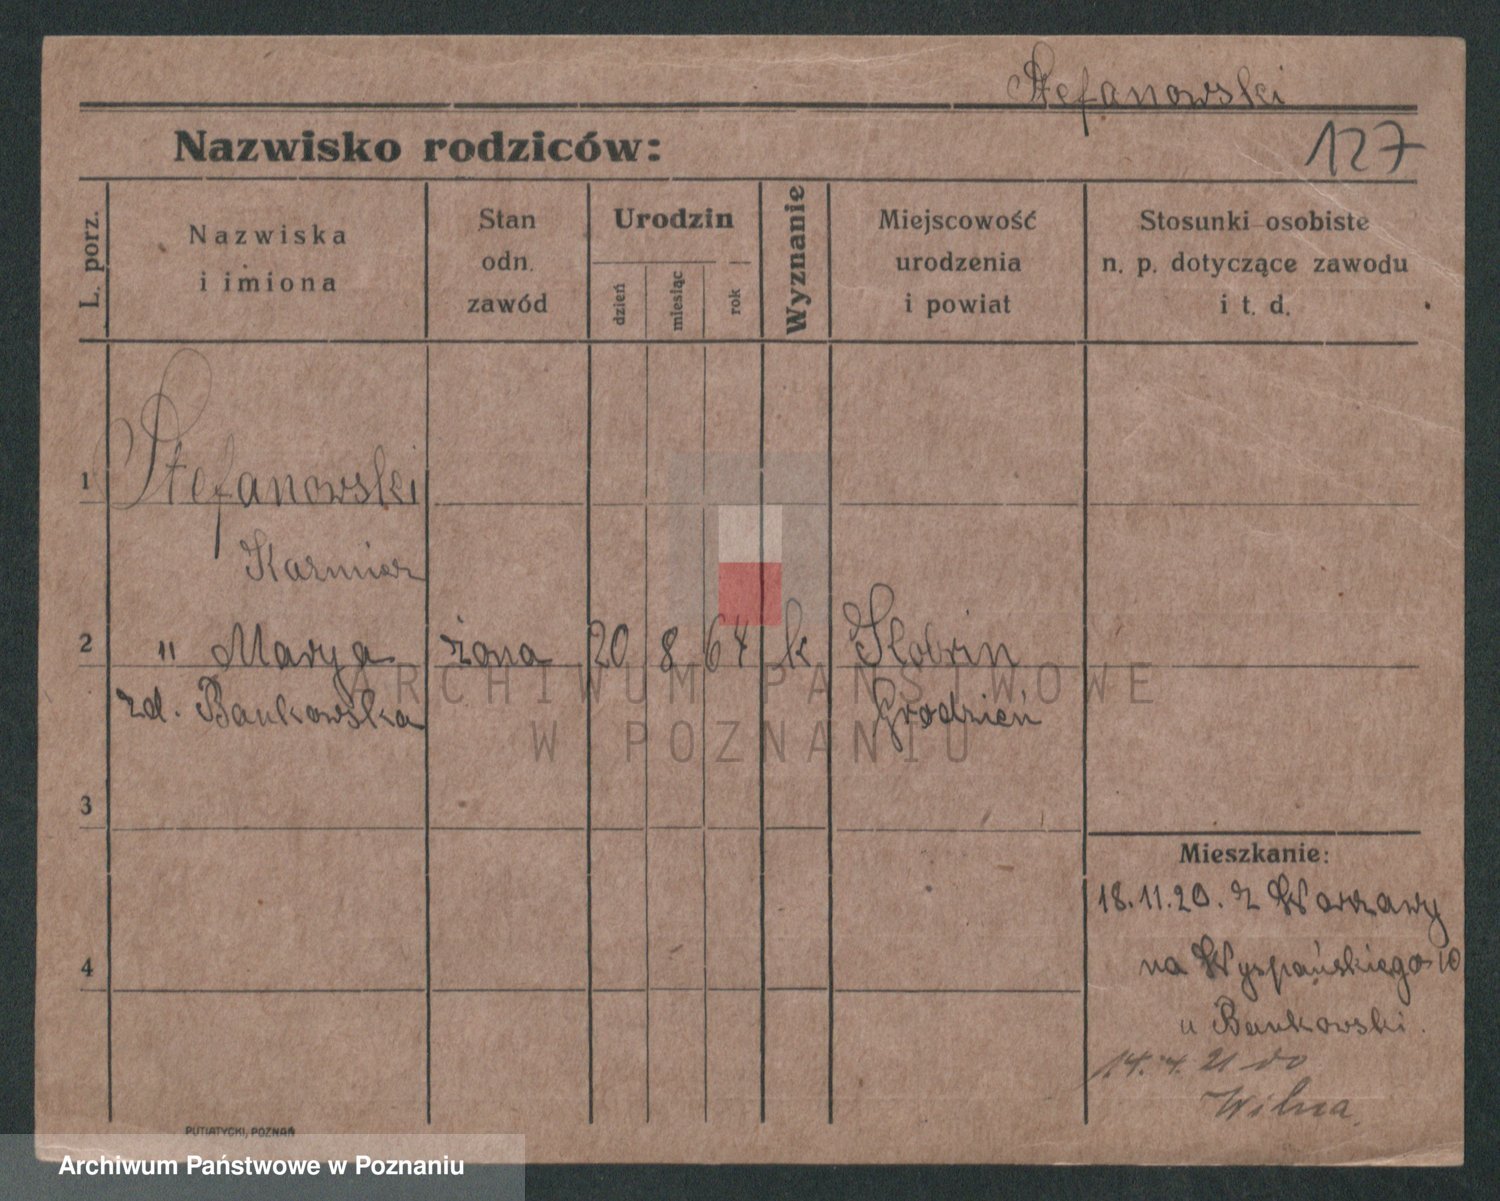 Stefanowski
Nazwisko rodziców:
127
L. porz.
Nazwiska
i imiona
Stan
odn.
zawód
Urodzin
dzień
miesiąc
rok
Wyznanie
Miejscowość
urodzenia
i powiat
Stosunki osobiste
n. p. dotyczące zawodu
i t. d.
1 Stefanowski
Kazmierz
2 " Marya żona 20 8 64 k Slobrin
zd. Bankowska Grodzień
ARCHIWUM PAŃSTWOWE
W POZNANIU
3
Mieszkanie:
18.11.20. z Warszawy
na Wyspańskiego 10
4
u Bankowski.
14. 4. 21 do
Wilna
PUTIATYCKI, POZNAŃ
Archiwum Państwowe w Poznaniu